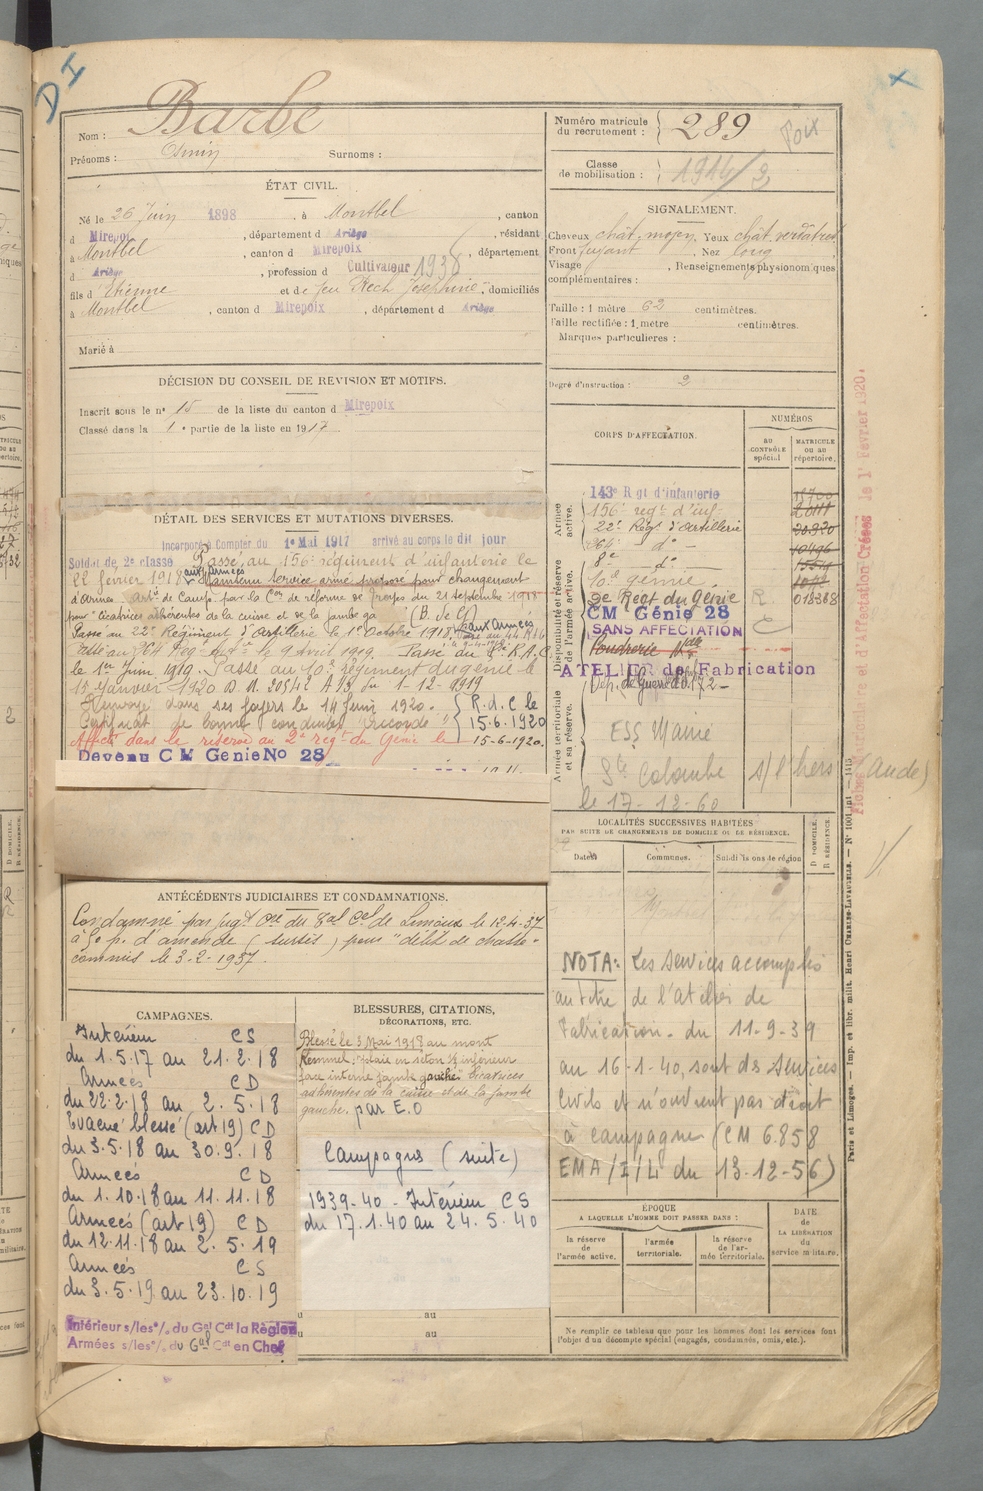 D I
Nom : Barbe
Prénoms : Surnoms :
Numéro matricule
du recrutement : 289
Foix
Classe
de mobilisation : 1914/2
ÉTAT CIVIL.
Né le 26 Juin 1898, à Montbel, canton
d Mirepoix, département d Ariège, résidant
à Montbel, canton d Mirepoix, département
d Ariège, profession d Cultivateur 1938
fils d Etienne et de feu Rech Joséphine, domiciliés
à Montbel, canton d Mirepoix, département d Ariège
Marié à
SIGNALEMENT.
Cheveux chât. moyen. Yeux chât. verdâtres
Front fuyant. Nez long
Visage , Renseignements physionomiques
complémentaires :
Taille : 1 mètre 62 centimètres.
Taille rectifiée : 1 mètre centimètres.
Marques particulières :
Degré d'instruction : 2
DÉCISION DU CONSEIL DE REVISION ET MOTIFS.
Inscrit sous le n° 15 de la liste du canton d Mirepoix
Classé dans la 1e partie de la liste en 1917.
CORPS D'AFFECTATION.
NUMÉROS
AU CONTRÔLE spécial
MATRICULE OU AU répertoire.
Armée active.
143e Rgt d'infanterie
156e regt d'inf
22e Regt d'artillerie
264e do
8e do
10e génie.
Disponibilité et réserve de l'armée active.
2e Regt du Génie R 018388
CM Génie 28
SANS AFFECTATION
ATELIER de Fabrication
Armée territoriale et sa réserve.
ESS Mairie
Ste Colombe s/l'hers (Aude)
le 17-12-60
DÉTAIL DES SERVICES ET MUTATIONS DIVERSES.
Incorporé à Compter du 1er Mai 1917 arrivé au corps le dit jour
Soldat de 2e classe Passé au 156e régiment d'infanterie le
22 février 1918 aux Armées Maintenu service armé proposé pour changement
d'Armes artie de Camp. par la Con de reforme de Troyes du 21 septembre 1918
pour "cicatrices adhérentes de la cuisse et de la jambe ga (B. de G)
Passé au 22e Régiment d'artillerie le 1er Octobre 1918, aux Armées
Passé au 264 Reg Art le 9 Avril 1919. Passé au 8e R.A.C
le 1er Juin 1919. Passé au 10e régiment du génie le
15 janvier 1920 D.M. 20542 A 13 du 1-12-1919
Renvoyé dans ses foyers le 14 Juin 1920. R.d.C le
Certificat de bonne conduite "accordé" 15.6.1920
Affecté dans la réserve au 2e regt du Génie le 15-6-1920.
Devenu CM Genie No 28
Fiches Matriculaire et d'Affectation Créées le 1er Février 1920.
LOCALITÉS SUCCESSIVES HABITÉES
PAR SUITE DE CHANGEMENTS DE DOMICILE OU DE RÉSIDENCE.
Dates Communes. Subdivisions de région
D DOMICILE.
R RÉSIDENCE.
ANTÉCÉDENTS JUDICIAIRES ET CONDAMNATIONS.
Condamné par jugt Cre du Bal Cel de Limoux le 12-4-37
à 50 f. d'amende (sursis) pour "délit de chasse"
commis le 3-2-1937.
NOTA: Les services accomplis
au titre de l'atelier de
Fabrication du 11-9-39
au 16-1-40, sont des services
Civils et n'ouvrent pas droit
à campagne (CM 6.858
EMA/I/L du 13-12-56)
CAMPAGNES.
Intérieur CS
du 1.5.17 au 21.2.18
Armées CD
du 22.2.18 au 2.5.18
Evacué blessé (art 19) CD
du 3.5.18 au 30.9.18
Armées CD
du 1.10.18 au 11.11.18
Armées (art 19) CD
du 12.11.18 au 2.5.19
Armées CS
du 3.5.19 au 23.10.19
Intérieur s/les °/. du Gal Cdt la Région
Armées s/les °/. du Gal Cdt en Chef
BLESSURES, CITATIONS,
DÉCORATIONS, ETC.
Blessé le 3 Mai 1918 au mont
Kemmel; plaie en séton 1/3 inférieur
face interne jambe gauche. Cicatrices
adhérentes de la cuisse et de la jambe
gauche. par E.O
Campagnes (suite)
1939-40 - Intérieur CS
du 17.1.40 au 24.5.40
au
au
ÉPOQUE
A LAQUELLE L'HOMME DOIT PASSER DANS :
la réserve de l'armée active.
l'armée territoriale.
la réserve de l'armée territoriale.
DATE
DE LA LIBÉRATION
du
service militaire.
Ne remplir ce tableau que pour les hommes dont les services font
l'objet d'un décompte spécial (engagés, condamnés, omis, etc.).
Paris et Limoges. — Imp. et libr. milit. Henri CHARLES-LAVAUZELLE.